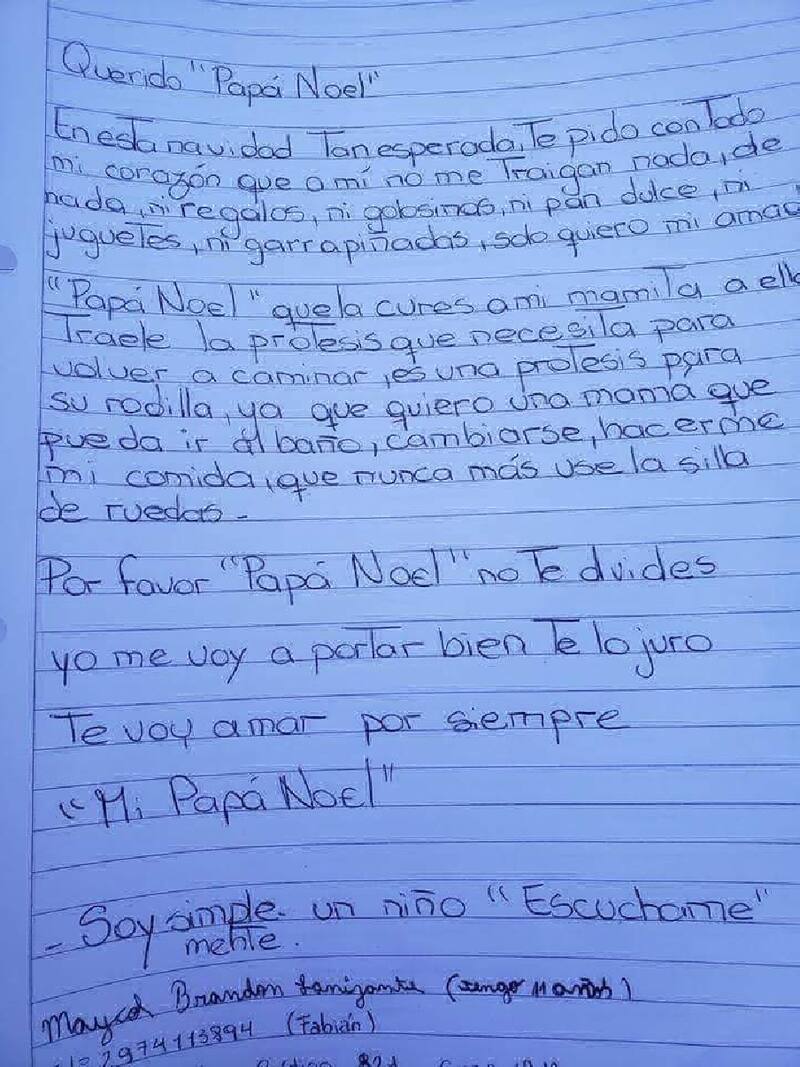 Querido "Papá Noel"
En esta navidad Tan esperada, Te pido con Todo
mi corazón que a mí no me Traigan nada, de
nada, ni regalos, ni golosinas, ni pan dulce, ni
juguetes, ni garrapiñadas, solo quiero mi amado
"Papá Noel" que la cures a mi mamita a ella
Traele la protesis que necesita para
volver a caminar, es una protesis para
su rodilla, ya que quiero una mamá que
pueda ir al baño, cambiarse, hacerme
mi comida, que nunca más use la silla
de ruedas.
Por favor "Papá Noel" no Te olvides
yo me voy a portar bien Te lo juro
Te voy amar por siempre
"Mi Papá Noel"
- Soy simple- un niño "Escuchame"
mente.
Brandon (Tengo 11 años)
2974113894 (Fabián)